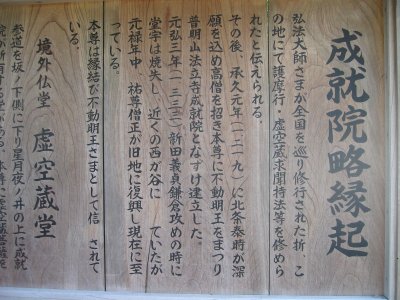 成就院略縁起
弘法大師さまが全国を巡り修行された折、こ
の地にて護摩行、虚空蔵求聞持法等を修めら
れたと伝えられる。
その後、承久元年(一二一九)に北条泰時が深
願を込め高僧を招き本尊に不動明王をまつり
普明山法立寺成就院となづけ建立した。
元弘三年(一三三三)新田義貞鎌倉攻めの時に
堂宇は焼失し、近くの西が谷に
ていたが
元禄年中、祐尊僧正が旧地に復興し現在に至
っている。
本尊は縁結び不動明王さまとして信
されて
いる。
境外仏堂 虚空蔵堂
参道を坂ノ下側に下り星月夜ノ井の上に成就